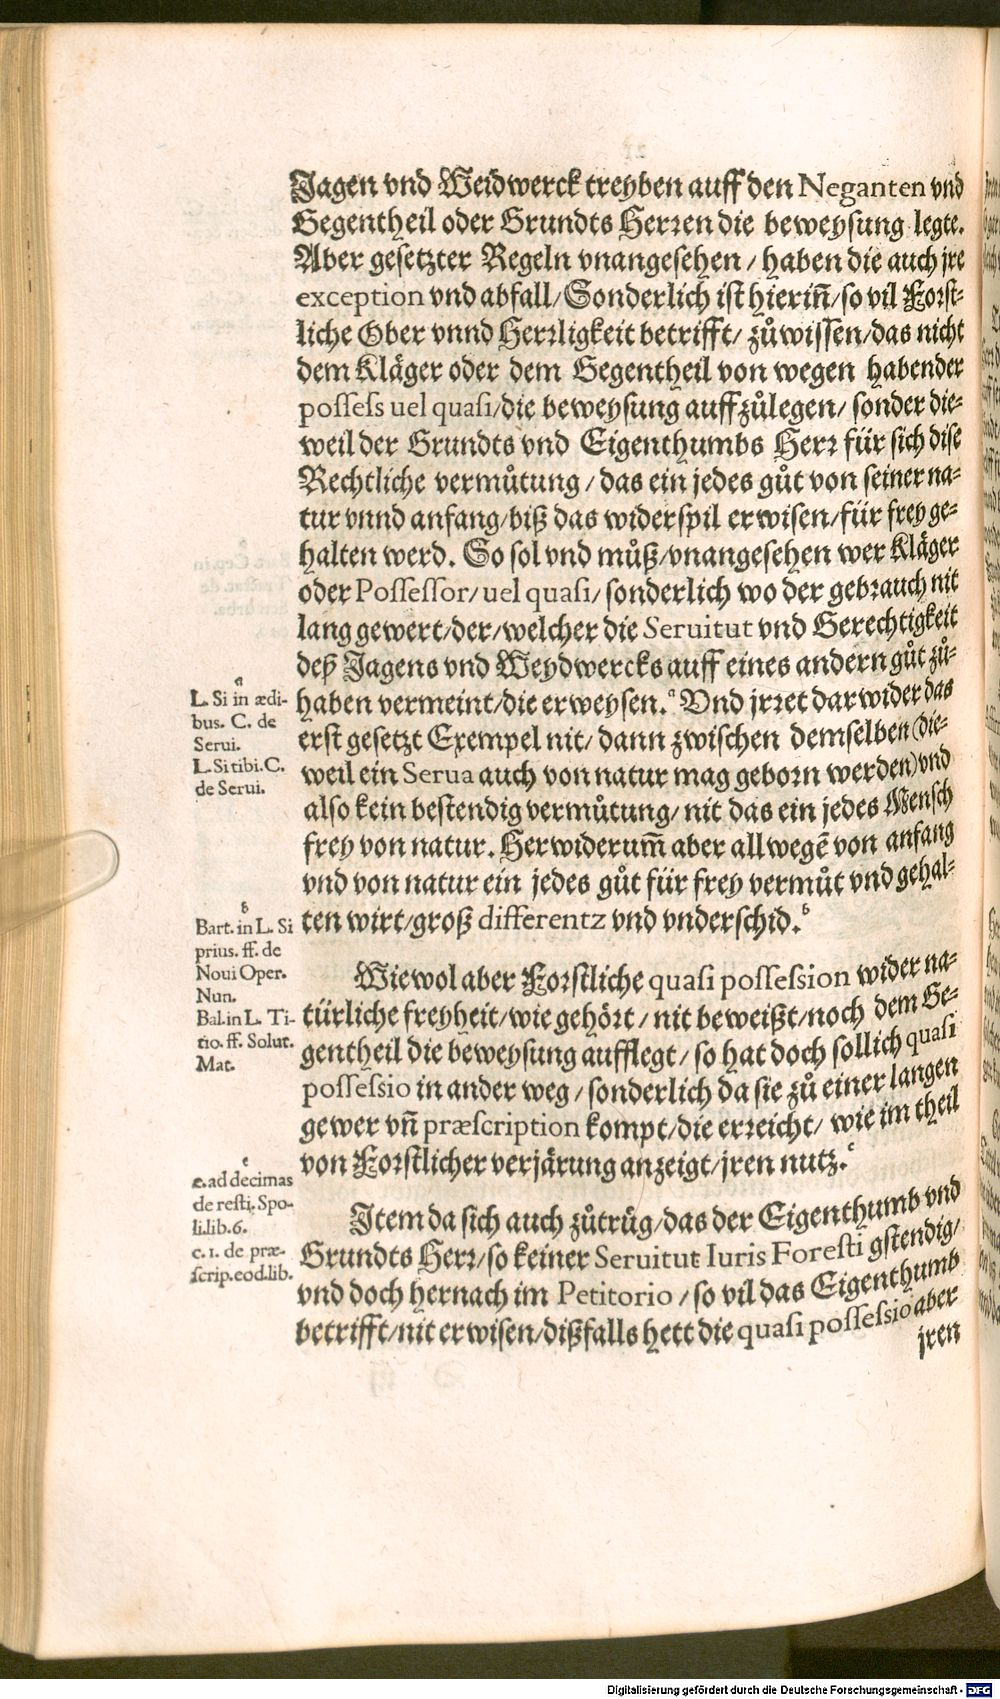 Jagen vnd Weidwerck treyben auff den Neganten vnd
Gegentheil oder Grundts Herren die beweysung legte.
Aber gesetzter Regeln vnangesehen / haben die auch jre
exception vnd abfall / Sonderlich ist hierin̄ / so vil Forst-
liche Ober vnnd Herrligkeit betrifft / zůwissen / das nicht
dem Kläger oder dem Gegentheil von wegen habender
possess uel quasi / die beweysung auffzůlegen / sonder die-
weil der Grundts vnd Eigenthumbs Herr für sich dise
Rechtliche vermůtung / das ein jedes gůt von seiner na-
tur vnnd anfang / biß das widerspil erwisen / für frey ge-
halten werd. So sol vnd můß / vnangesehen wer Kläger
oder Possessor / uel quasi / sonderlich wo der gebrauch nit
lang gewert / der / welcher die Seruitut vnd Gerechtigkeit
deß Jagens vnd Weydwercks auff eines andern gůt zů-
haben vermeint / die erweysen. a Vnd jrret darwider das
erst gesetzt Exempel nit / dann zwischen demselben (die-
weil ein Serua auch von natur mag geborn werden) vnd
also kein bestendig vermůtung / nit das ein jedes Mensch
frey von natur. Herwiderum̄ aber allwegē von anfang
vnd von natur ein jedes gůt für frey vermůt vnd gehal-
ten wirt / groß differentz vnd vnderschid. b
Wiewol aber Forstliche quasi possession wider na-
türliche freyheit / wie gehört / nit beweißt / noch dem Ge-
gentheil die beweysung aufflegt / so hat doch sollich quasi
possessio in ander weg / sonderlich da sie zů einer langen
gewer vn̄ præscription kompt / die erreicht / wie im theil
von Forstlicher verjärung anzeigt / jren nutz. c
Item da sich auch zůtrüg / das der Eigenthumb vnd
Grundts Herr / so keiner Seruitut Iuris Foresti gstendig /
vnd doch hernach im Petitorio / so vil das Eigenthumb
betrifft / nit erwisen / dißfalls hett die quasi possessio aber
jren
a
L. Si in ædi-
bus. C. de
Serui.
L. Si tibi. C.
de Serui.
b
Bart. in L. Si
prius. ff. de
Noui Oper.
Nun.
Bal. in L. Ti-
tio. ff. Solut.
Mat.
c
c. ad decimas
de resti. Spo-
li. lib. 6.
c. 1. de præ-
scrip. eod. lib.
Digitalisierung gefördert durch die Deutsche Forschungsgemeinschaft - DFG